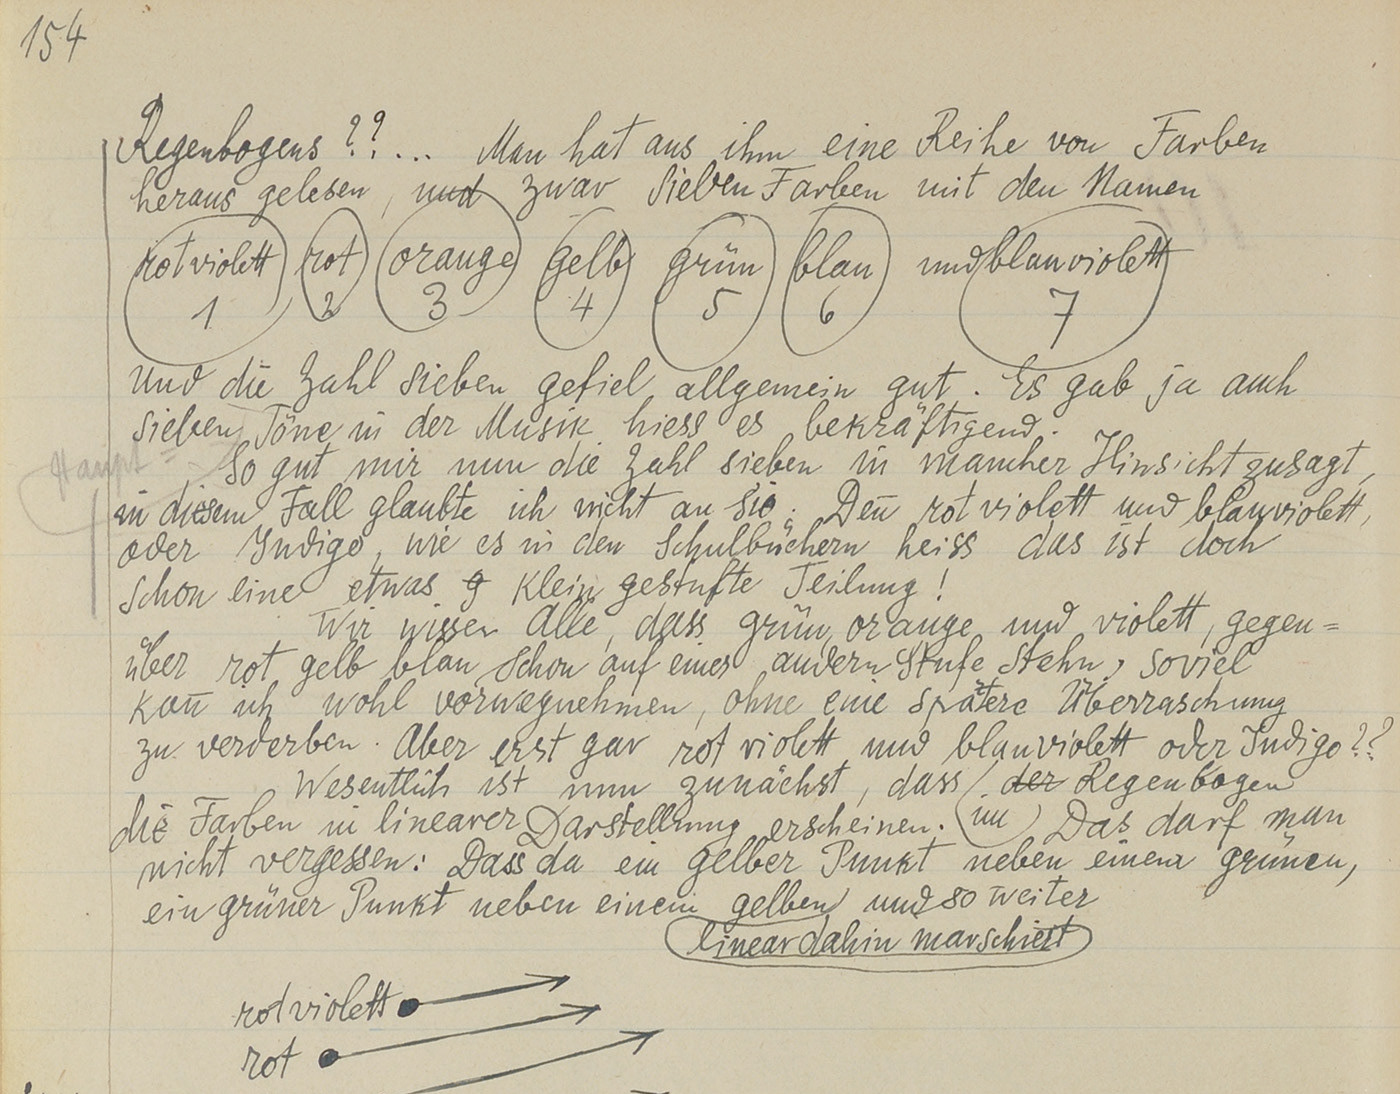 154
Regenbogens ??... Man hat aus ihm eine Reihe von Farben
heraus gelesen, und zwar sieben Farben mit den Namen
rotviolett rot orange gelb grün blau und blauviolett
1 2 3 4 5 6 7
Und die Zahl sieben gefiel allgemein gut. Es gab ja auch
sieben Töne in der Musik hiess es bekräftigend.
Haupt=
So gut mir nun die Zahl sieben in mancher Hinsicht zusagt,
in diesem Fall glaubte ich nicht an sie. Den̄ rotviolett und blauviolett,
oder Indigo, wie es in den Schulbüchern heiss das ist doch
schon eine etwas g klein gestufte Teilung!
Wir wissen Alle, dass grün, orange und violett, gegen=
über rot gelb blau schon auf einer andern Stufe stehn, soviel
kan̄ ich wohl vorwegnehmen, ohne eine spätere Überraschung
zu verderben. Aber erst gar rotviolett und blauviolett oder Indigo??
Wesentlich ist nun zunächst, dass der Regenbogen
die Farben in linearer Darstellung erscheinen. (im) Das darf man
nicht vergessen: Dass da ein gelber Punkt neben einem grünen,
ein grüner Punkt neben einem gelben und so weiter
linear dahin marschiert
rotviolett
rot